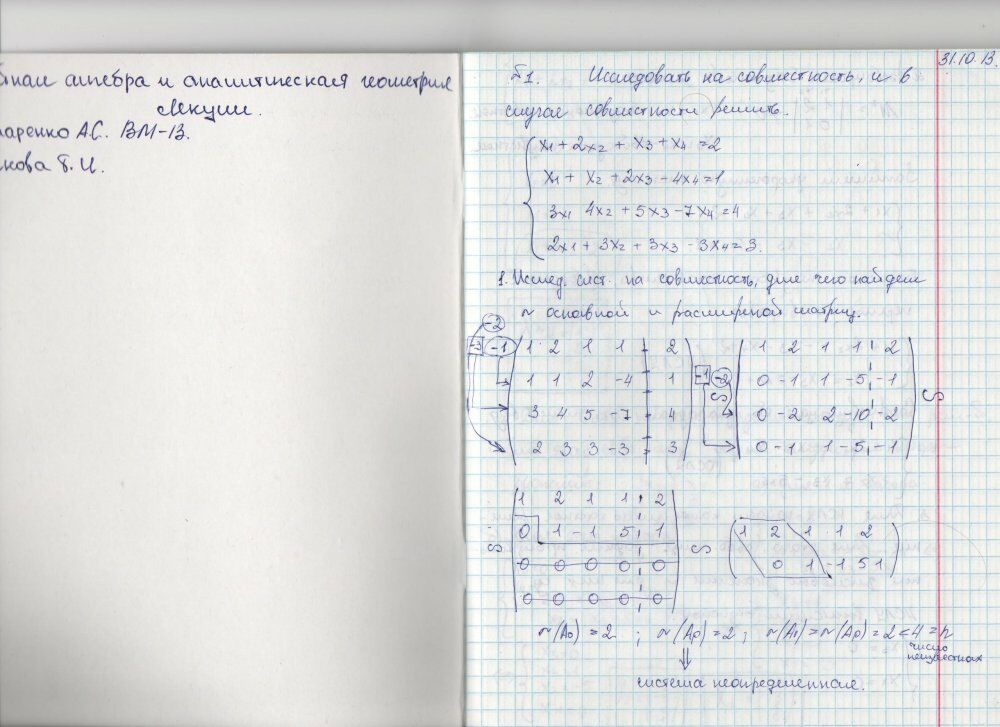 алгебра и аналитическая геометрия
Лекции.
аренко А.С. ВМ-13.
кова Т. И.
31.10.13.
Б1. Исследовать на совместность, и в
случае совместности решить.
x1 + 2x2 + x3 + x4 = 2
x1 + x2 + 2x3 - 4x4 = 1
3x1 4x2 + 5x3 - 7x4 = 4
2x1 + 3x2 + 3x3 - 3x4 = 3.
1. Исслед. сист. на совместность, для чего найдем
r основной и расширенной матриц.
-2
-3 -1 1 2 1 1 2
1 1 2 -4 1
3 4 5 -7 4
2 3 3 -3 3
-1 -2
1 2 1 1 2
0 -1 1 -5 -1
0 -2 2 -10 -2
0 -1 1 -5 -1
1 2 1 1 2
0 1 -1 5 1
0 0 0 0 0
0 0 0 0 0
1 2 1 1 2
0 1 -1 5 1
r(A0) = 2 ; r(Ap) = 2 ; r(A0) = r(Ap) = 2 < 4 = n
число
неизвестных
система неопределенная.